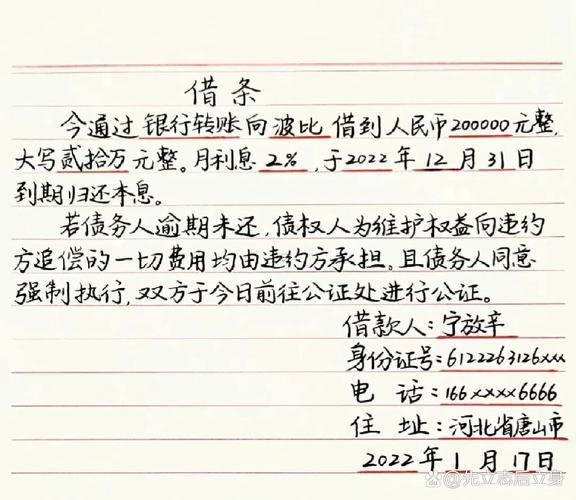 借条
今通过 银行转账 向 波比 借到人民币200000元整,
大写贰拾万元整。月利息 2%，于2022年12月31日
到期归还本息。
若债务人逾期未还，债权人为维护权益向违约
方追偿的一切费用均由违约方承担。且债务人同意
强制执行，双方于今日前往公证处进行公证。
借款人：宁放辛
身份证号：6122263126xxx
电 话：166xxxx6666
住 址：河北省唐山市
2022年1月17日
@先立志后立身